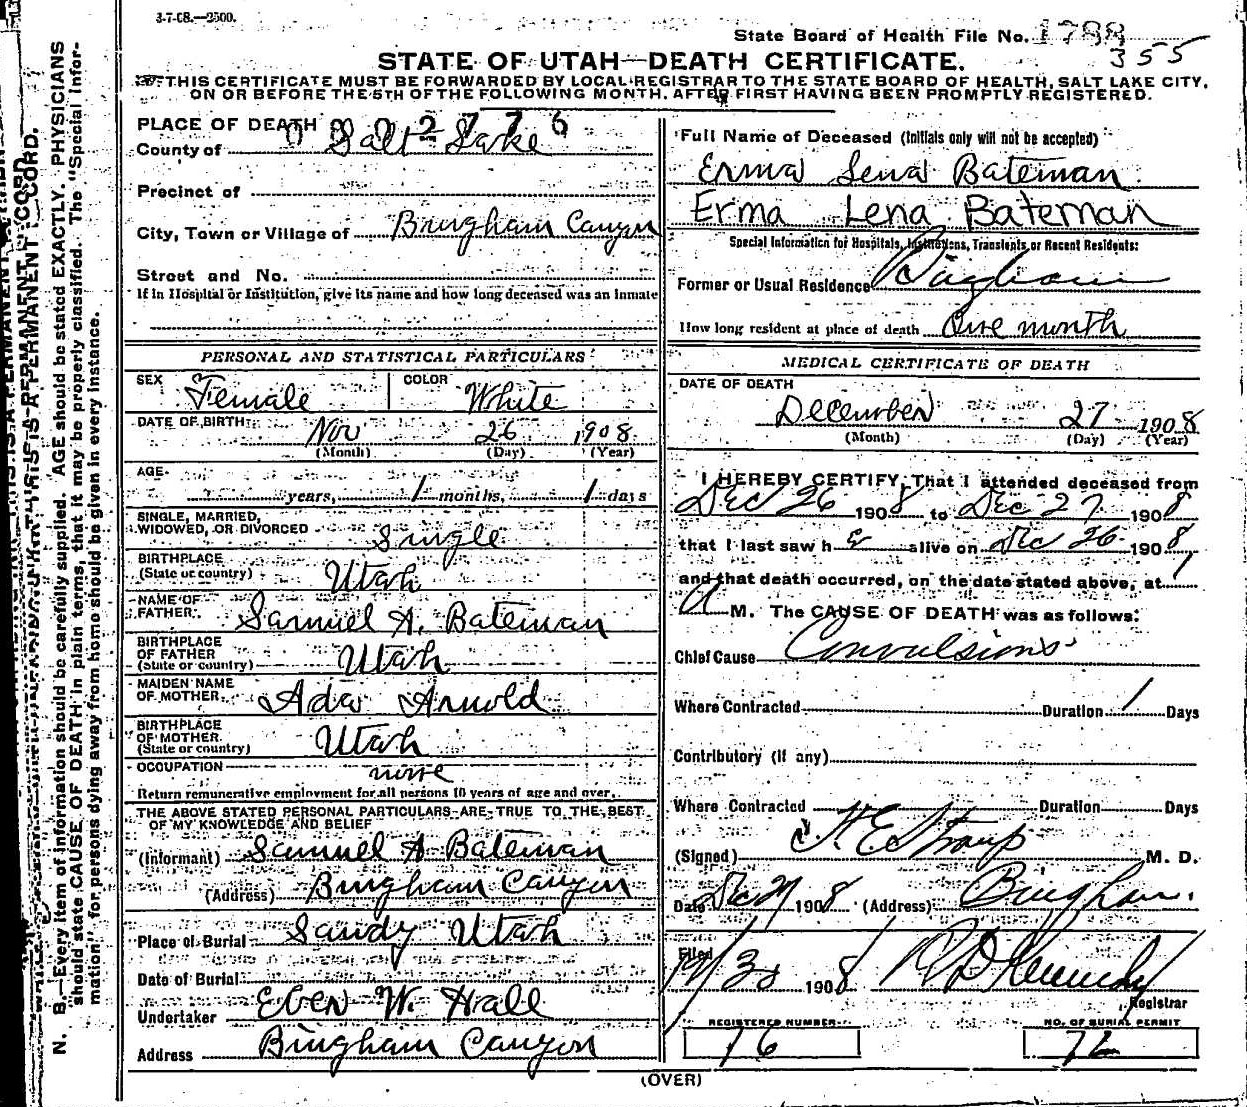 3-7-08.—2500.
State Board of Health File No. 1788
355
STATE OF UTAH—DEATH CERTIFICATE.
THIS CERTIFICATE MUST BE FORWARDED BY LOCAL REGISTRAR TO THE STATE BOARD OF HEALTH, SALT LAKE CITY,
ON OR BEFORE THE 5TH OF THE FOLLOWING MONTH, AFTER FIRST HAVING BEEN PROMPTLY REGISTERED.
N. B.—Every item of information should be carefully supplied. AGE should be stated EXACTLY. PHYSICIANS
should state CAUSE OF DEATH in plain terms, that it may be properly classified. The "Special Infor-
mation" for persons dying away from home should be given in every instance.
THIS IS A PERMANENT RECORD.
PLACE OF DEATH 2776
County of Salt Lake
Precinct of
City, Town or Village of Bingham Canyon
Street and No.
If in Hospital or Institution, give its name and how long deceased was an inmate
PERSONAL AND STATISTICAL PARTICULARS
SEX Female COLOR White
DATE OF BIRTH Nov 26 1908
(Month) (Day) (Year)
AGE
years, 1 months, 1 days
SINGLE, MARRIED,
WIDOWED, OR DIVORCED Single
BIRTHPLACE
(State or country) Utah
NAME OF
FATHER Samuel A. Bateman
BIRTHPLACE
OF FATHER
(State or country) Utah
MAIDEN NAME
OF MOTHER Ada Arnold
BIRTHPLACE
OF MOTHER
(State or country) Utah
OCCUPATION none
Return remunerative employment for all persons 10 years of age and over.
THE ABOVE STATED PERSONAL PARTICULARS ARE TRUE TO THE BEST
OF MY KNOWLEDGE AND BELIEF
(Informant) Samuel A Bateman
(Address) Bingham Canyon
Place of Burial Sandy Utah
Date of Burial
Undertaker Eben W. Hall
Address Bingham Canyon
Full Name of Deceased (Initials only will not be accepted)
Erma Lena Bateman
Erma Lena Bateman
Special Information for Hospitals, Institutions, Transients or Recent Residents:
Former or Usual Residence Bingham
How long resident at place of death One month
MEDICAL CERTIFICATE OF DEATH
DATE OF DEATH
December 27 1908
(Month) (Day) (Year)
I HEREBY CERTIFY, That I attended deceased from
Dec 26 1908 to Dec 27 1908
that I last saw her alive on Dec 26 1908,
and that death occurred, on the date stated above, at 1
A M. The CAUSE OF DEATH was as follows:
Chief Cause Convulsions
Where Contracted Duration 1 Days
Contributory (if any)
Where Contracted Duration Days
(Signed) M. D.
Date Dec 27 1908 (Address) Bingham.
Filed 12/30 1908
Registrar
REGISTERED NUMBER NO. OF BURIAL PERMIT
76 72
(OVER)